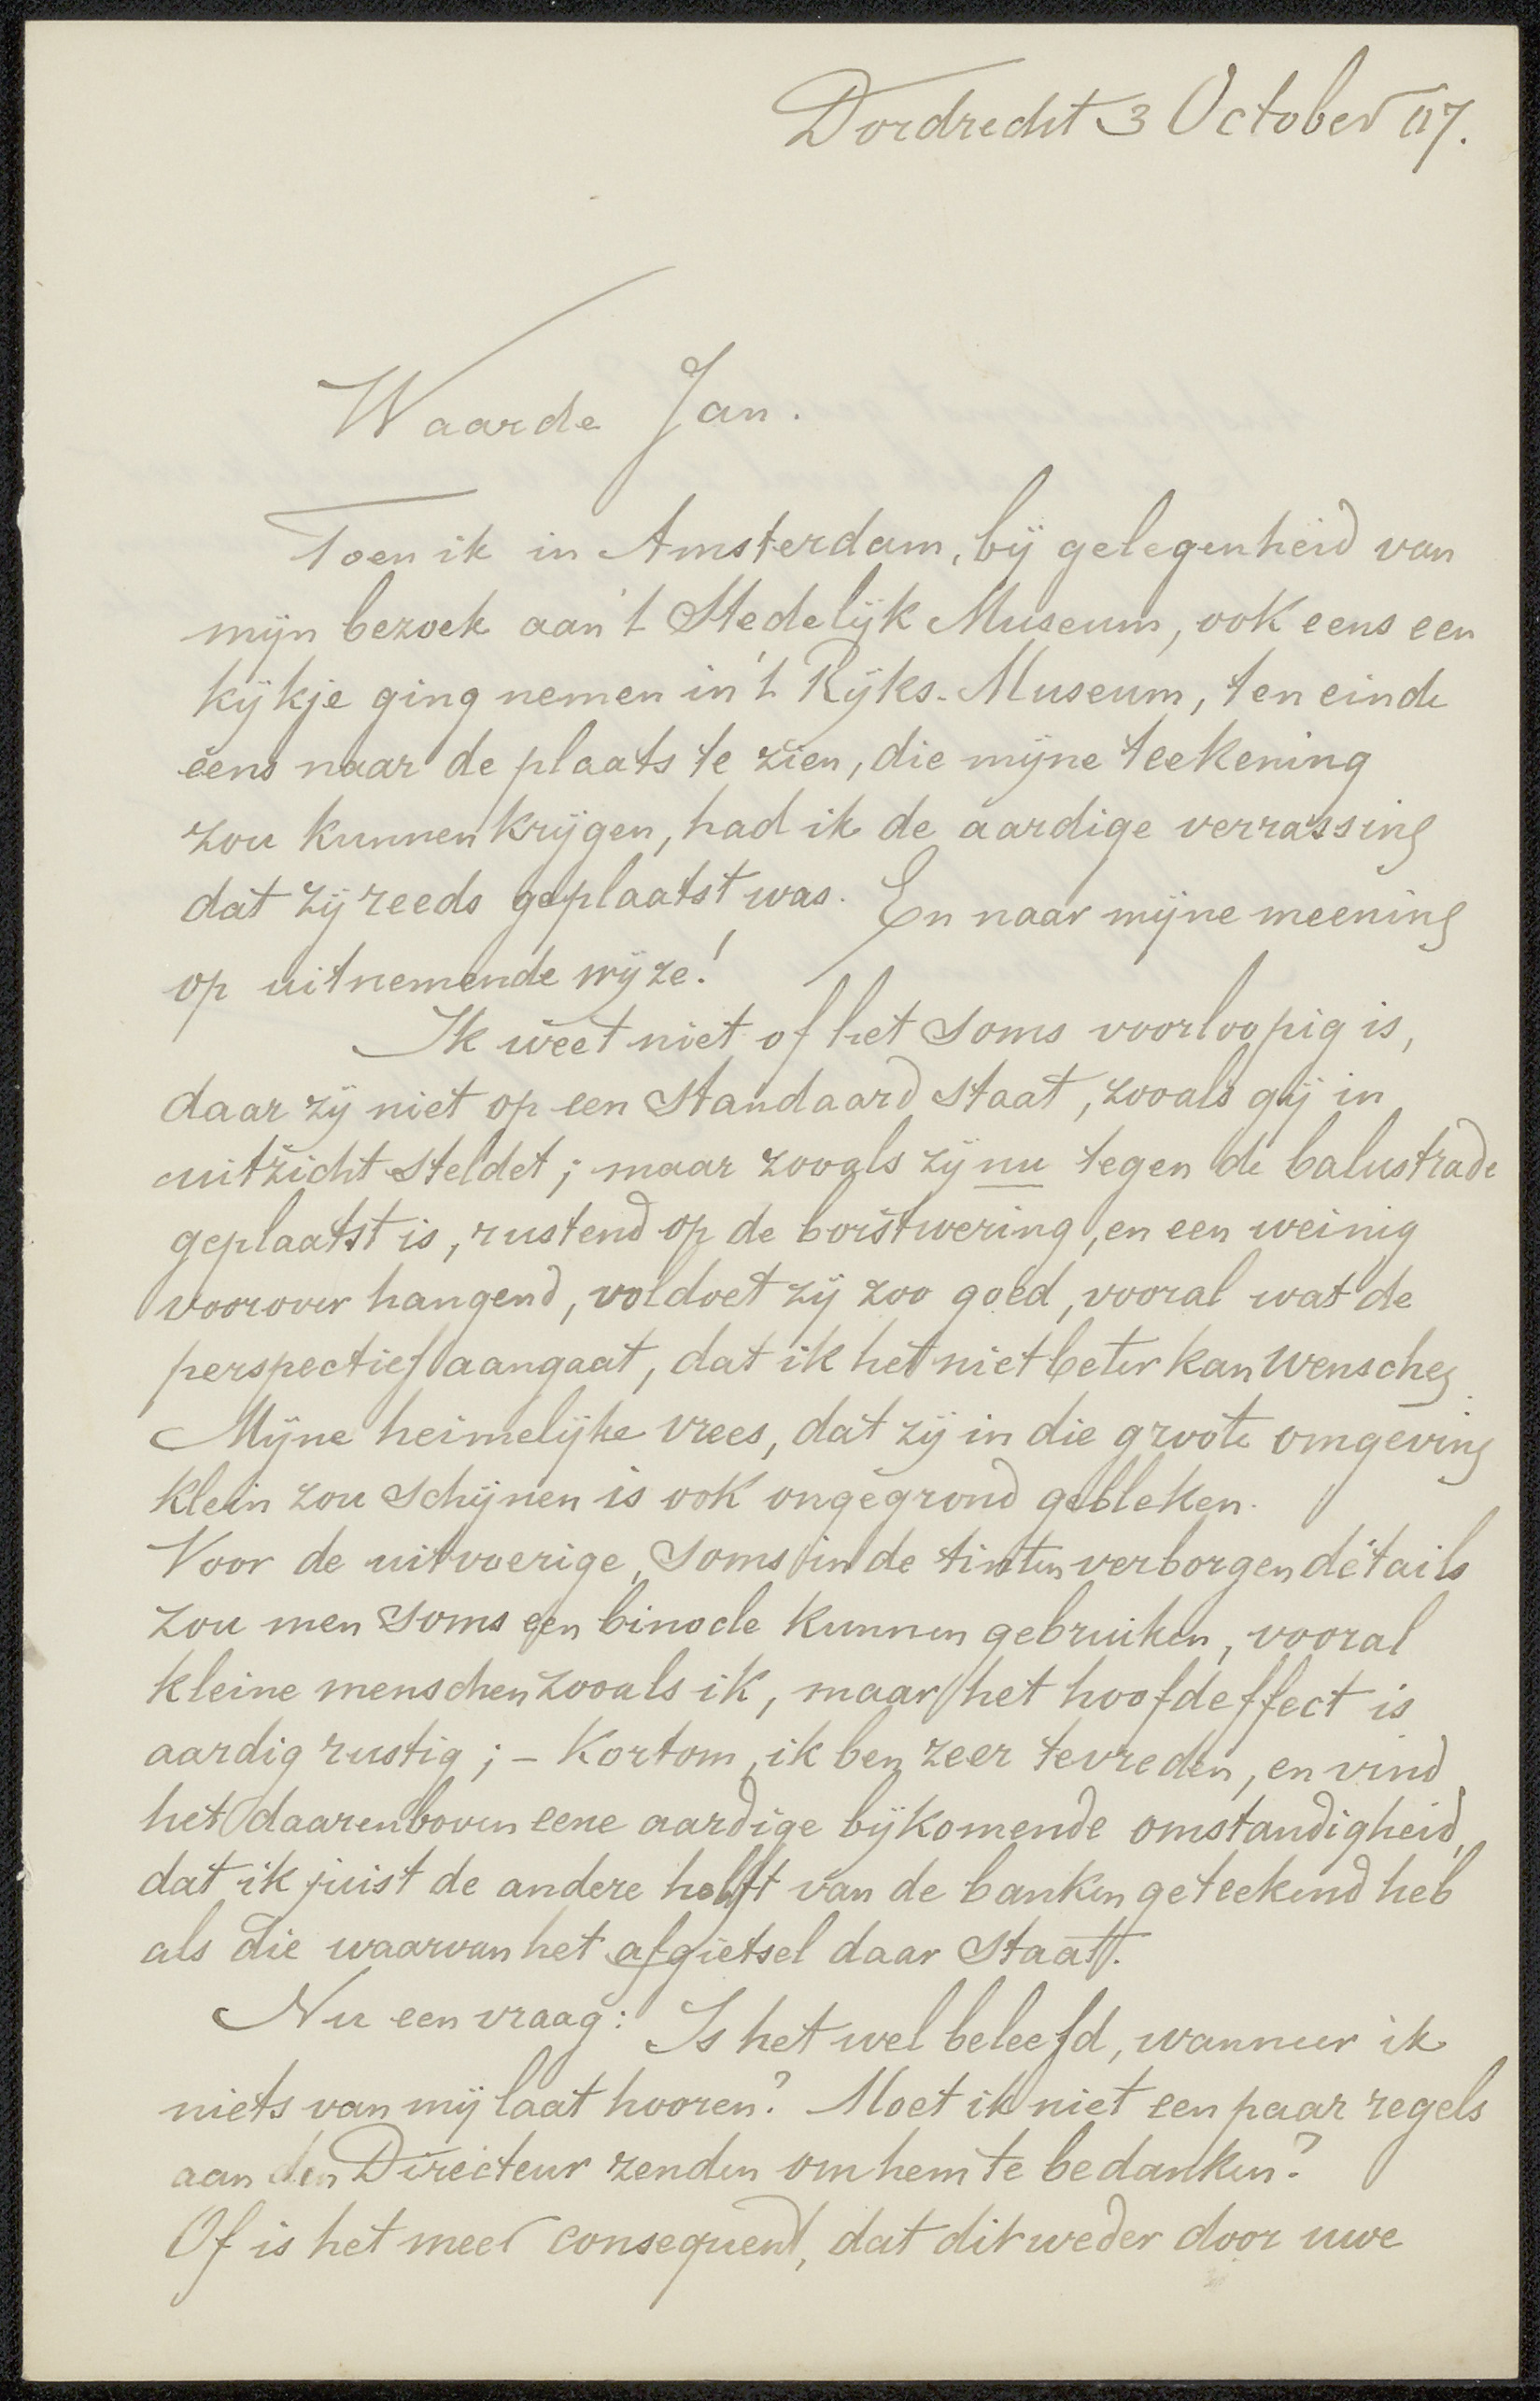 Dordrecht 3 October 07.
Waarde Jan.
Toen ik in Amsterdam, bij gelegenheid van
mijn bezoek aan 't Stedelijk Museum, ook eens een
kijkje ging nemen in 't Rijks-Museum, ten einde
eens naar de plaats te zien, die mijne teekening
zou kunnen krijgen, had ik de aardige verrassing
dat zij reeds geplaatst was. En naar mijne meening
op uitnemende wijze!
Ik weet niet of het soms voorloopig is,
daar zij niet op een Standaard staat, zooals gij in
uitzicht steldet; maar zooals zij nu tegen de balustrade
geplaatst is, rustend op de borstwering, en een weinig
voorover hangend, voldoet zij zoo goed, vooral wat de
perspectief aangaat, dat ik het niet beter kan wenschen.
Mijne heimelijke vrees, dat zij in die groote omgeving
klein zou schijnen is ook ongegrond gebleken.
Voor de uitvoerige, soms in de tinten verborgen détails
zou men soms een binocle kunnen gebruiken, vooral
kleine menschen zooals ik, maar het hoofdeffect is
aardig rustig; - Kortom, ik ben zeer tevreden, en vind
het daarenboven eene aardige bijkomende omstandigheid,
dat ik juist de andere helft van de banken geteekend heb
als die waarvan het afgietsel daar staat.
Nu een vraag: Is het wel beleefd, wanneer ik
niets van mij laat hooren? Moet ik niet een paar regels
aan den Directeur zenden om hem te bedanken?
Of is het meer consequent, dat dit weder door uwe